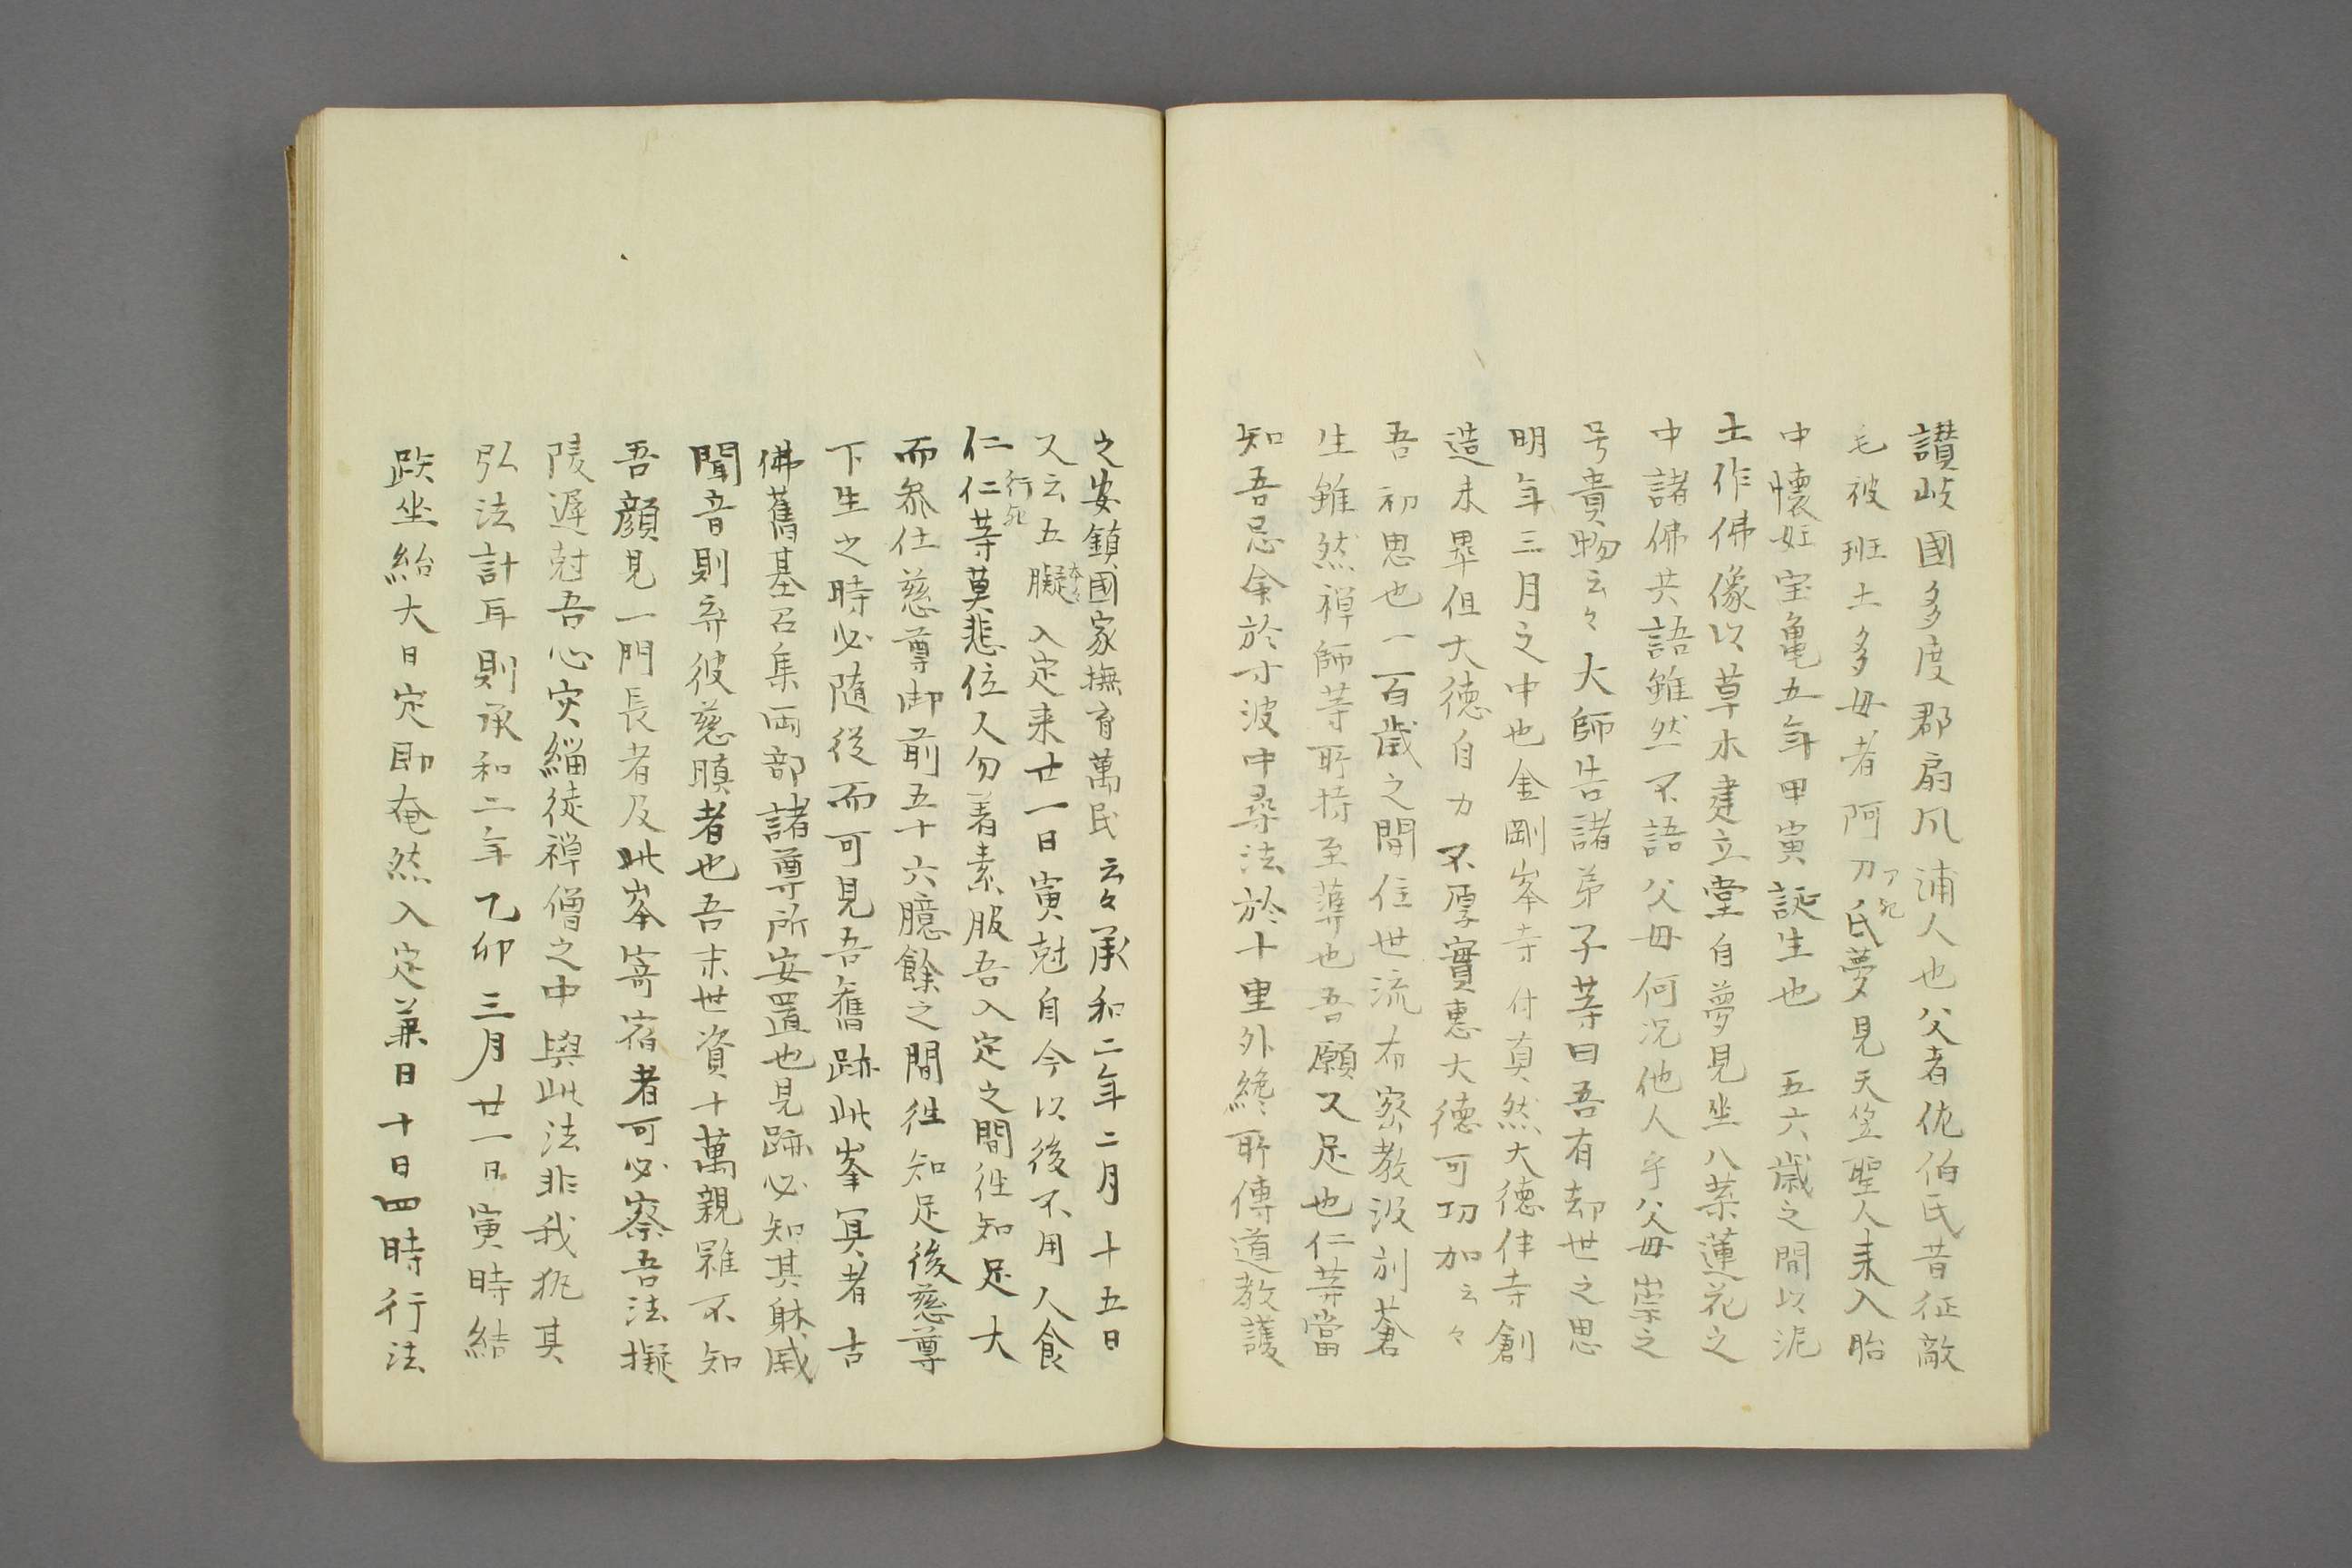 讃岐國多度郡扇風浦人也父者佐伯氏昔征敵
毛被班土多母者阿刀氏夢見天竺聖人来入胎
中懐妊宝亀五年甲寅誕生也　五六歳之間以泥
土作佛像以草木建立堂自夢見坐八葉蓮花之
中諸佛共語雖然不語父母何况他人乎父母崇之
号貴物云々大師告諸弟子等曰吾有却世之思
明年三月之中也金剛峯寺付真然大徳件寺創
造未畢但大徳自力不厚實惠大徳可功加云々
吾初思也一百歳之間住世流布密教汲引蒼
生雖然禅師等所恃至篤也吾願又足也仁等當
知吾忌命於寸波中尋法於十里外纔所傳道教護
之安鎮國家撫育萬民云々承和二年二月十五日
又云吾擬入定来廿一日寅尅自今以後不用人食
仁仁等莫悲位又勿著素服吾入定之間往知足大
而参仕慈尊御前五十六臆餘之間往知足後慈尊
下生之時必随從而可見吾舊跡此峯冥者古
佛舊基召集両部諸尊所安置也見跡必知其躰威
聞音則弁彼慈瞋者也吾末世資十萬親雖不知
吾顔見一門長者及此峯寄宿者可必察吾法擬
陵遅尅吾心灾緇徒禅僧之中與此法非我執其
弘法計耳則承和二年乙卯三月廿一日寅時結
跌坐給大日定即奄然入定兼日十日四時行法